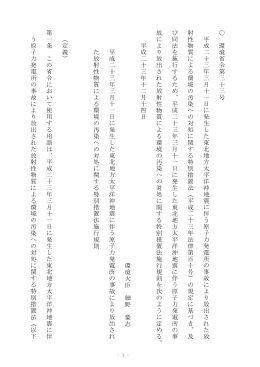 ○ 環境省令第三十三号
平成二十三年三月十一日に発生した東北地方太平洋沖地震に伴う原子力発電所の事故により放出された放
射性物質による環境の汚染への対処に関する特別措置法（平成二十三年法律第百十号）の規定に基づき、及
び同法を施行するため、平成二十三年三月十一日に発生した東北地方太平洋沖地震に伴う原子力発電所の事
故により放出された放射性物質による環境の汚染への対処に関する特別措置法施行規則を次のように定める。
平成二十三年十二月十四日
環境大臣 細野 豪志
平成二十三年三月十一日に発生した東北地方太平洋沖地震に伴う原子力発電所の事故により放出され
た放射性物質による環境の汚染への対処に関する特別措置法施行規則
（定義）
第一条 この省令において使用する用語は、平成二十三年三月十一日に発生した東北地方太平洋沖地震に伴
う原子力発電所の事故により放出された放射性物質による環境の汚染への対処に関する特別措置法（以下
- 1 -